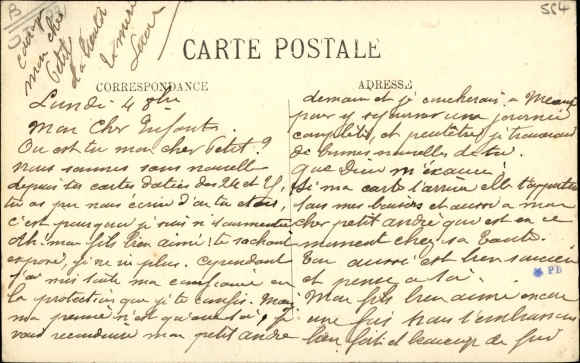 B
564
courage
mon cher
Petit
CARTE POSTALE
CORRESPONDANCE
ADRESSE
Lundi 4 8bre
Mon cher Enfant
Où est tu mon cher Petit?
Nous sommes sans nouvelle
depuis tes cartes datées des 24 et
tu as pu nous écrire
c'est pourquoi je suis si tourmentée
Ah! mon fils bien aimé te sachant
exposé, je ne vis plus. Cependant
j'ai mis toute ma confiance en
la protection que je te confis. Mais
ma pensée n'est qu'avec toi, je
vous mon petit andré
demain et je coucherai a Meaux
pour y séjourner une journée
complète, et peutêtre j'y trouverai
de bonnes nouvelles de toi.
Que Dieu m'exauce!
Si ma carte t'arrive elle t'apportera
tous mes baisers et aussi a mon
cher petit andré que est en ce
moment chez sa tante.
Ton aussi est bien
et pense a toi.
PB
Mon fils bien aimé encore
une fois nous t'embrassons
bien fort et beaucoup de